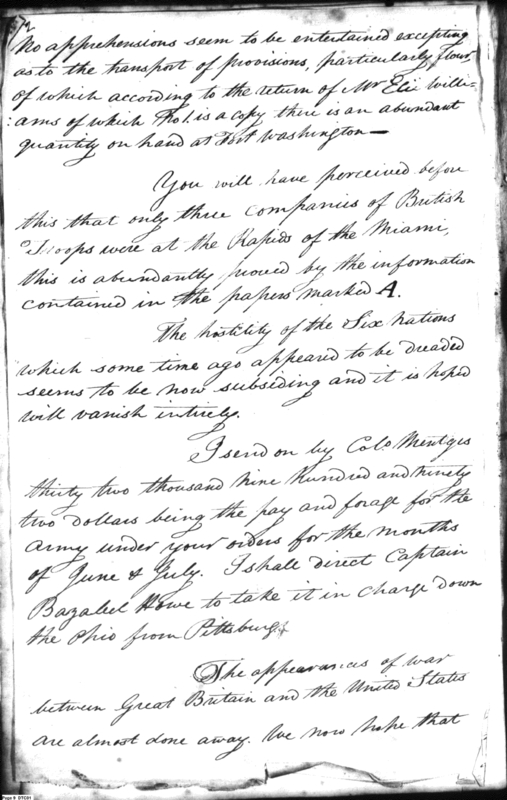 72
No apprehensions seem to be entertained excepting
as to the transport of provisions, particularly flour,
of which according to the return of Mr Elie Willi-
:ams of which No 1. is a copy there is an abundant
quantity on hand at Fort Washington—
You will have perceived before
this that only three companies of British
Troops were at the Rapids of the Miami,
this is abundantly proved by the information
contained in the papers marked A.
The hostility of the Six Nations
which some time ago appeared to be dreaded
seems to be now subsiding and it is hoped
will vanish intirely.
I send on by Colo. Mentges
thirty two thousand nine hundred and ninety
two dollars being the pay and forage for the
army under your orders for the months
of June & July. I shall direct Captain
Bazabel Howe to take it in charge down
the Ohio from Pittsburg
The appearances of war
between Great Britain and the United States
are almost done away. We now hope that
Page 8 DTC01